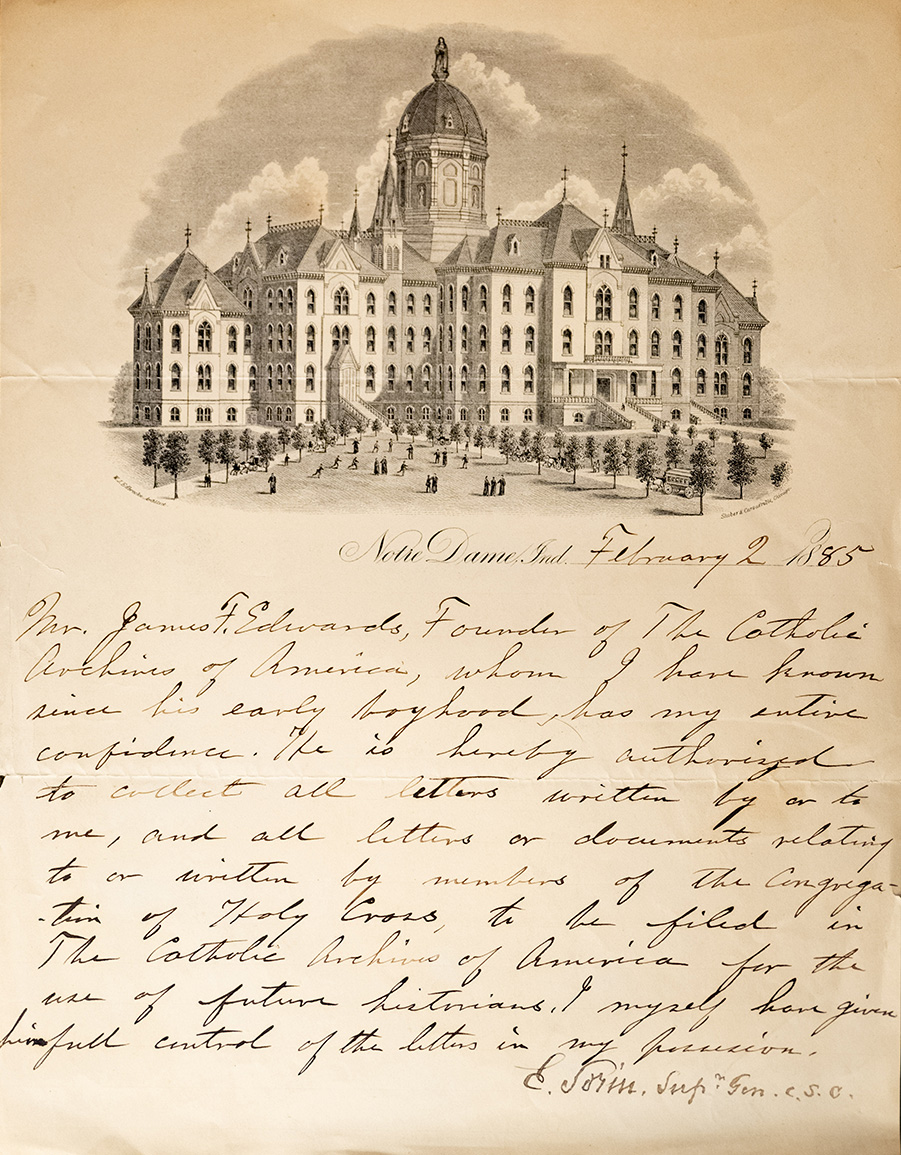 Notre Dame, Ind. February 2 1885
Mr. James F. Edwards, Founder of The Catholic
Archives of America, whom I have known
since his early boyhood, has my entire
confidence. He is hereby authorized
to collect all letters written by or to
me, and all letters or documents relating
to or written by members of the Congrega-
-tion of Holy Cross, to be filed in
The Catholic Archives of America for the
use of future historians. I myself have given
him full control of the letters in my possesion.
E. Sorin. Supr. Gen. C.S.C.